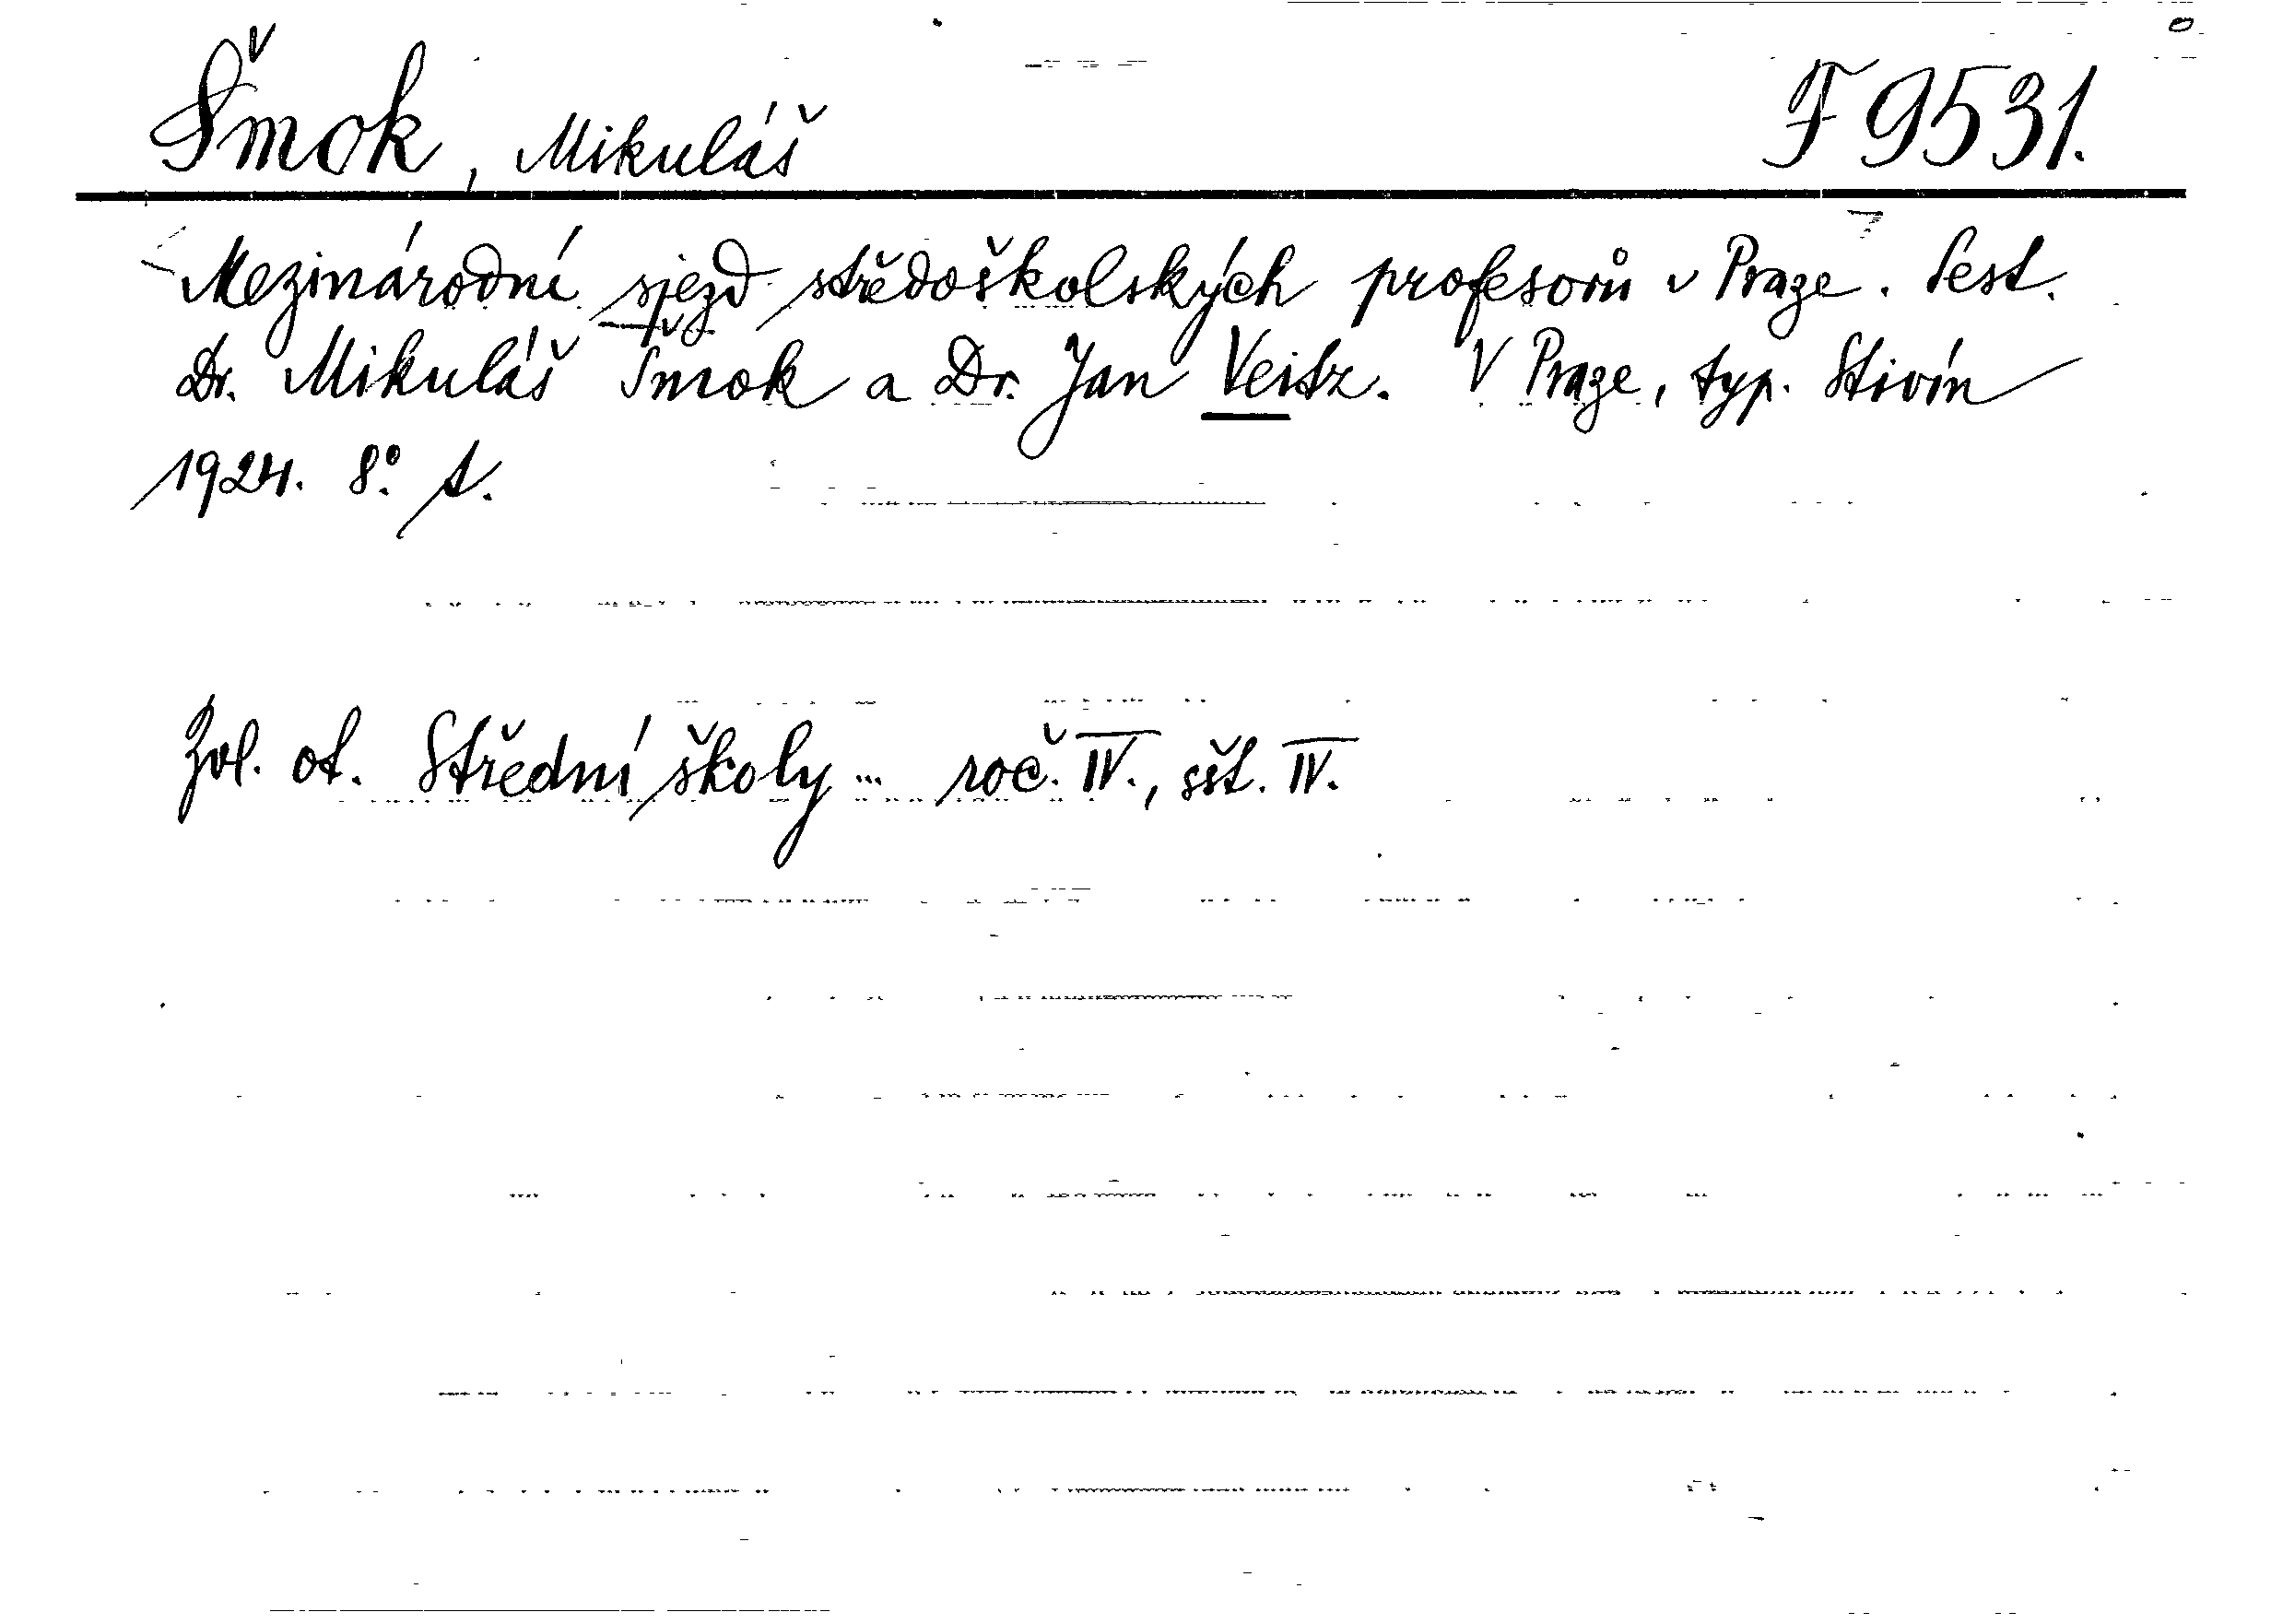 Šmok, Mikuláš F 9531.
Mezinárodní sjezd středoškolských profesorů v Praze. Sest.
Dr. Mikuláš Šmok a Dr. Jan Veitz. V Praze, typ. Stivín
1924. 8°. s.
Zvl. ot. Střední školy... roč. IV., sšt. IV.